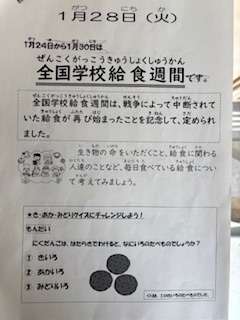 1月28日（火）
1月24日から1月30日は
全国学校給食週間です。
全国学校給食週間は、戦争によって中断されて
いた給食が再び始まったことを記念して、定められ
ました。
生き物の命をいただくこと、給食に関わる
人達のことなど、毎日食べている給食につい
て考えてみましょう。
★き・あか・みどりクイズにチャレンジしよう！
もんだい
にくだんごは、はたらきでわけると、なにいろのたべものでしょうか？
① きいろ
② あかいろ
③ みどりいろ